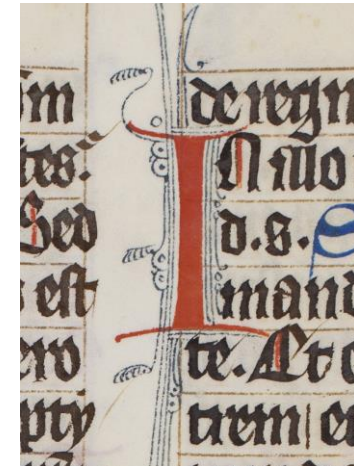 m
tes.
Sed
s est
ero
pty
de regn
In illo
d.s. S
mand
te. Et
trem er